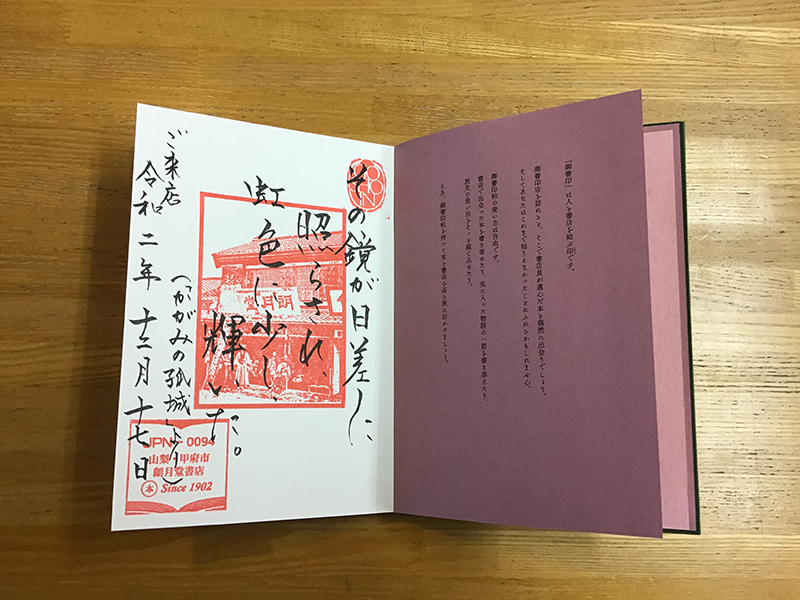 「御書印」は人と書店を結ぶ印です。
御書印店を訪れると、そこで書店員が選んだ本と偶然に出会うでしょう。
そしてあなたはこれまで知りえなかったことにふれるかもしれません。
御書印帖の使い方は自由です。
書店で出会った本を書き留めたり、気に入った物語の一節を書き添えたり、
旅先の思い出をそっと綴じ込めたり。
さあ、御書印帖を持って本と書店を巡る旅に出かけましょう。
その鏡が日差しに
照らされ、
虹色に少し、
輝いた。
(『かがみの孤城』より)
令和二年 十二月 十七日
ご来店
朗月堂
JPN - 0094
山梨 甲府市
朗月堂書店
本 Since 1902